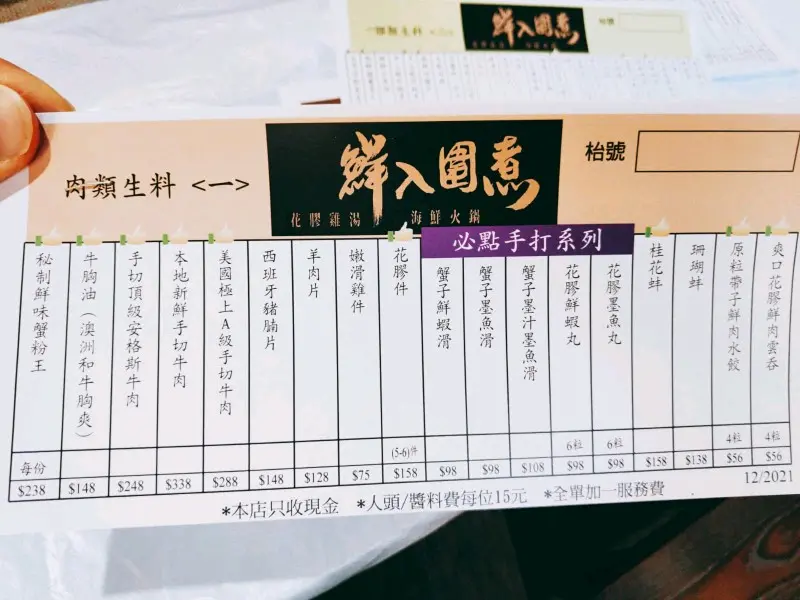 一類生料
鮮入圍煮
枱號
肉類生料 <一>
鮮入圍煮
花膠雞湯
海鮮火鍋
枱號
必點手打系列
秘制鮮味蟹粉王
每份
$238
牛胸油（澳洲和牛胸爽）
$148
手切頂級安格斯牛肉
$248
本地新鮮手切牛肉
$338
美國極上A級手切牛肉
$288
西班牙豬腩片
$148
羊肉片
$128
嫩滑雞件
$75
花膠件
(5-6)件
$158
蟹子鮮蝦滑
$98
蟹子墨魚滑
$98
蟹子墨汁墨魚滑
$108
花膠鮮蝦丸
6粒
$98
花膠墨魚丸
6粒
$98
桂花蚌
$158
珊瑚蚌
$138
原粒帶子鮮肉水餃
4粒
$56
爽口花膠鮮肉雲吞
4粒
$56
*本店只收現金 *人頭/醬料費每位15元 *全單加一服務費
12/2021